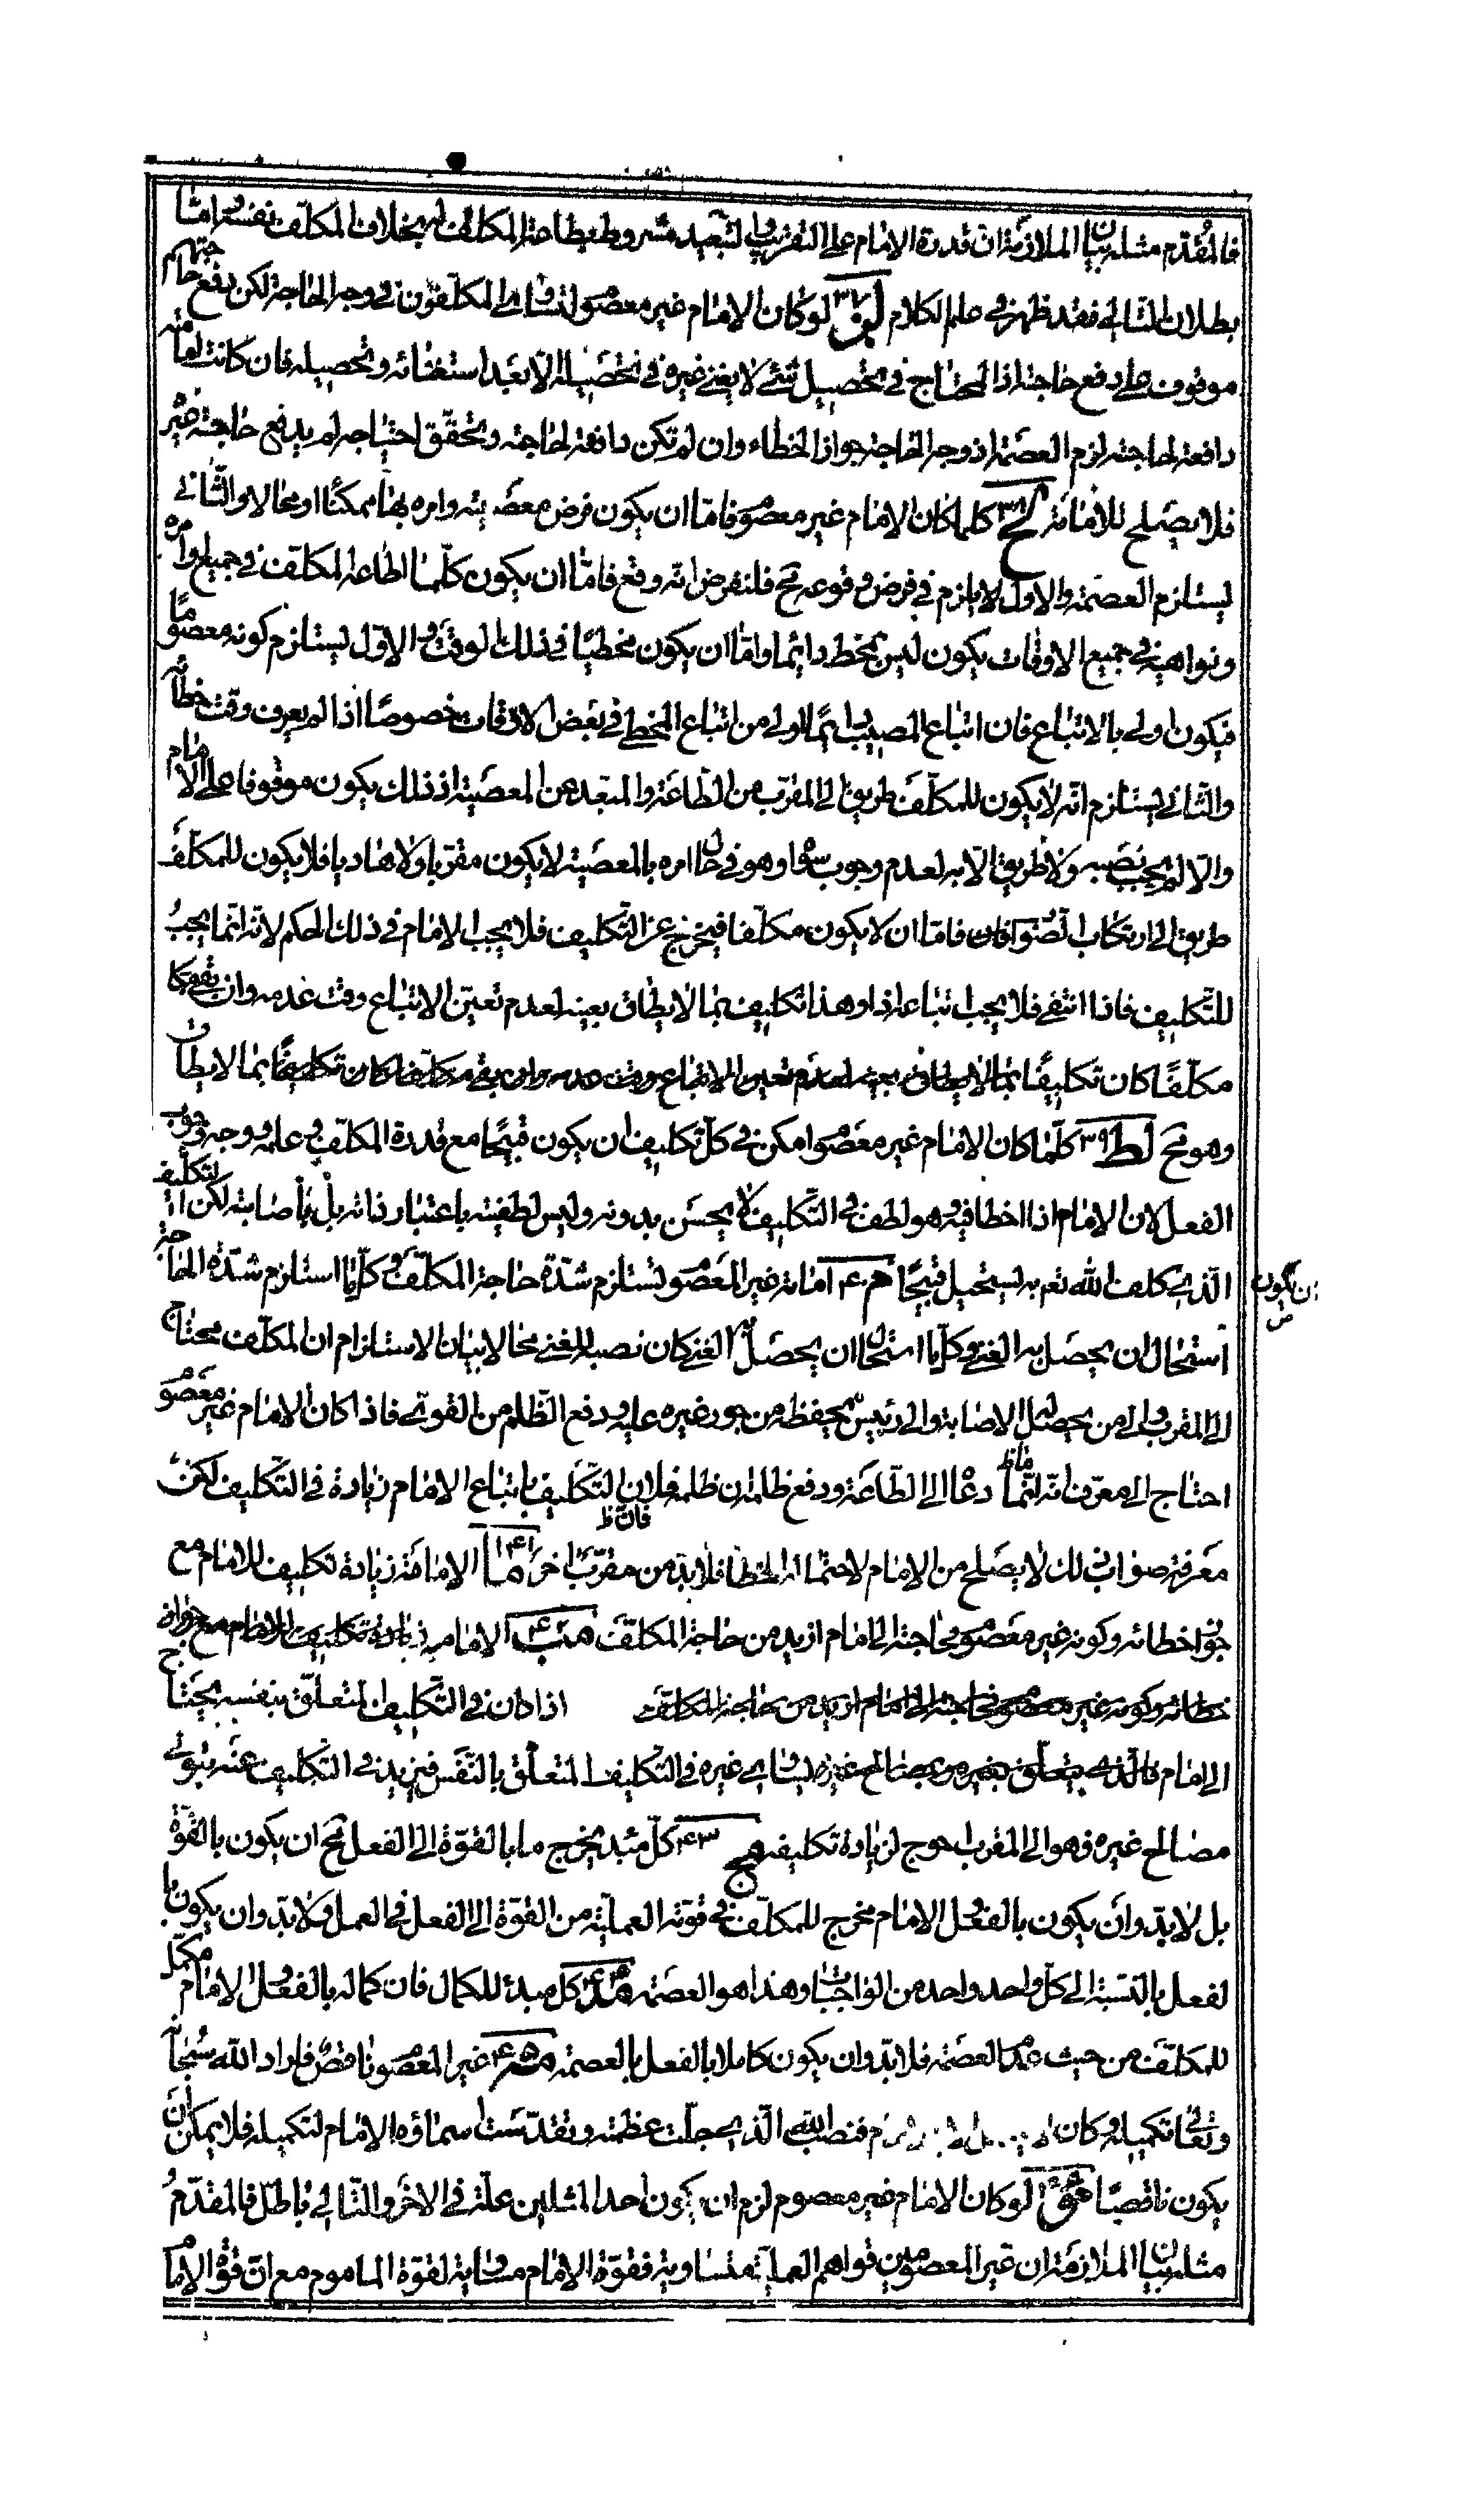 فالمقدم مثله بيان الملازمة ان قدرة الامام على التقريب والتبعيد مشروطة بطاعة المكلف له بخلاف المكلف نفسه واما
بطلان التالي فقد ظهر في علم الكلام لز ٣٧ لو كان الامام غير معصوم لتساوى المكلفون في وجه الحاجة لكن دفع حاجتهم
موقوف على دفع حاجته اذ المحتاج في تحصيل شئ لا يغني غيره في تحصيله الا بعد استغنائه وتحصيله فان كانت امامته
دافعة لحاجته لزم العصمة اذ وجه الحاجة جواز الخطاء وان لم تكن دافعة لحاجته وتحقق احتياجه لم يدفع حاجة غيره
فلا يصلح للامامة لح ٣٨ كلما كان الامام غير معصوم فاما ان يكون فرض معصيته وامره بها ممكنا او محالا والثاني
يستلزم العصمة والاول لا يلزم في فرض وقوعه مح فلنفرض انه وقع فاما ان يكون كلما اطاعه المكلف في جميع اوامره
ونواهيه في جميع الاوقات يكون ليس بمخط دائما واما ان يكون مخطيا في ذلك الوقت والاول يستلزم كونه معصوما
فيكون اولى بالاتباع فان اتباع المصيب دائما اولى من اتباع المخطي في بعض الاوقات خصوصا اذا لم يعرف وقت خطائه
والثاني يستلزم انه لا يكون للمكلف طريق الى المقرب من الطاعة والمبعد عن المعصية اذ ذلك يكون موقوفا على الامام
والا لم يجب نصبه ولا طريق الا به لعدم وجوب سواه وهو في حال امره بالمعصية لا يكون مقربا ولا هاديا فلا يكون للمكلف
طريق الى ارتكاب الصواب فاما ان لا يكون مكلفا فيخرج عن التكليف فلا يجب الامام في ذلك الحكم لانه انما يجب
للتكليف فاذا انتفى فلا يجب اتباعه اذا وهذا تكليف بما لا يطاق بعينه لعدم تعين الاتباع وقت عدمه وان بقي مكا
مكلفا كان تكليفا بما لا يطاق بعينه لعدم تعين الاتباع وقت عدمه وان بقي مكلفا كان تكليفا بما لا يطاق
وهو مح لط ٣٩ كلما كان الامام غير معصوم امكن في كل تكليف ان يكون قبيحا مع قدرة المكلف وعلمه ووجه وجوب
الفعل لان الامام اذا اخطا فيه وهو لطف في التكليف لا يحسن بدونه وليس لطفيته باعتبار ذاته بل باصابته لكن التكليف
الذي كلف الله تعم به يستحيل قبيحا م ۴۰ امامة غير المعصوم تستلزم شدة حاجة المكلف وكلما استلزم شدة الحاجة
ان يكون
ص
استحال ان يحصل به الغنى وكلما استحال ان يحصل به الغنى كان نصبه للغنى محالا بيان الاستلزام ان المكلف محتاج
الى المقرب والى من يحصل له الاصابة والى رئيس يحفظه من جور غيره عليه ودفع الظلم من القوى فاذا كان الامام غير معصوم
احتاج الى معرف انه انما دعا الى الطاعة ودفع ظلمه ان ظلمه فلان التكليف باتباع الامام زيادة في التكليف لكن
معرفة صواب ذلك لا يصلح من الامام لاحتمال الخطا فلا بد من مقرب اخر ما ۴۱ الامامة زيادة تكليف للامام مع
جواز خطائه وكونه غير معصوم فحاجته الى امام ازيد من حاجة المكلف مب ۴۲ الامامة زيادة تكليف للامام مع جواز
خطائه وكونه غير معصوم فحاجته الى امام ازيد من حاجة المكلف اذا كان في التكليف المتعلق بنفسه يحتاج
الى امام فالذي يتعلق بغيره من مصالح غيره يساوي غيره في التكليف المتعلق بالنفس فيزيد في التكليف عنه بتولي
مصالح غيره فهو الى المقرب احوج لزيادة تكليفه مج ۴۳ كل مبدء يخرج ما بالقوة الى الفعل مح ان يكون بالقوة
بل لا بد وان يكون بالفعل والامام مخرج للمكلف في قوته العملية من القوة الى الفعل في العمل فلا بد وان يكون با
لفعل بالنسبة الى كل واحد واحد من الواجبات وهذا هو العصمة مد ۴۴ كل مبدء للكمال فان كماله بالفعل والامام مكمل
للمكلف من حيث العصمة فلا بد وان يكون كاملا بالفعل بالعصمة مه ۴۵ غير المعصوم ناقص فاراد الله سبحانه
وتعالى تكميله وكان فنصب الله الذي جلت عظمته وتقدست اسماؤه الامام لتكميله فلا يمكن ان
يكون ناقصا مو ۴۶ لو كان الامام غير معصوم لزم ان يكون احد المثلين علة في الاخر والتالي باطل فالمقدم
مثله بيان الملازمة ان غير المعصومين قواهم العملية متساوية فقوة الامام مساوية لقوة الماموم مع ان قوة الامام